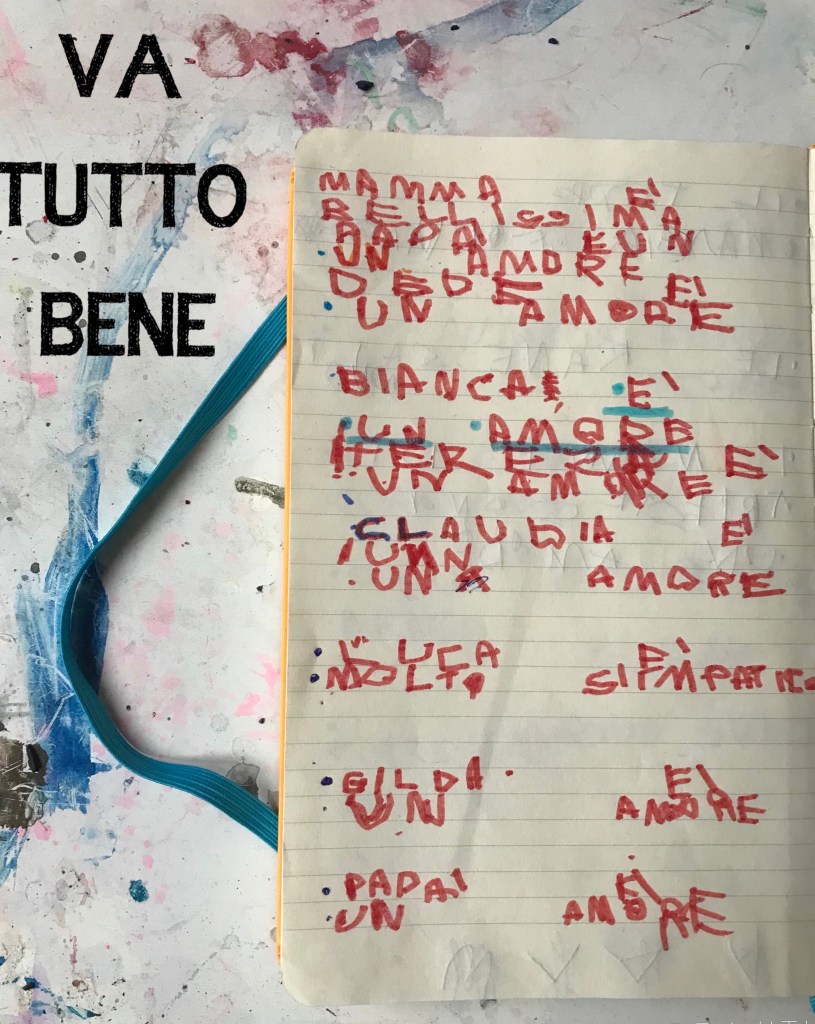 VA
TUTTO
BENE
MAMMA È
BELLISSIMA
PAPAI E UN
UN AMORE
DEDE E'
UN AMORE
BIANCA È
UN AMORE
ITER È
UN AMORE
CLAUDIA E'
UN
UN AMORE
LUCA È
MOLTO SIEMPATICO
GILDA È
UN AMORE
PADAI È
UN AMORE